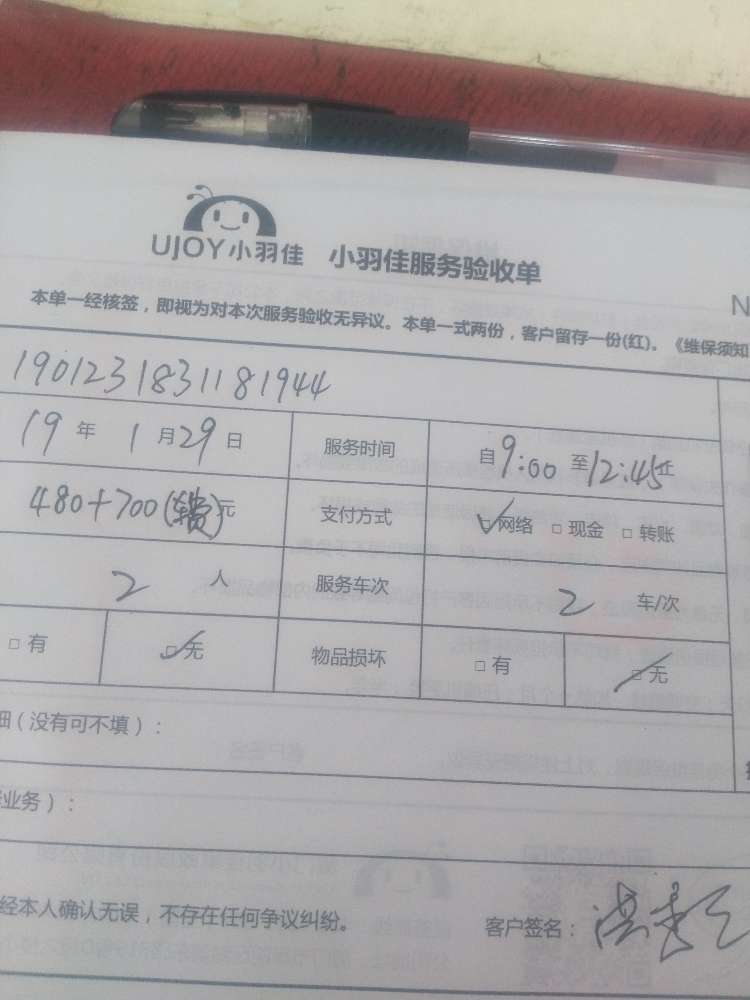 UJOY小羽佳 小羽佳服务验收单
N
本单一经核签，即视为对本次服务验收无异议。本单一式两份，客户留存一份(红)。《维保须知
1901231831181944
19年 1月29日 服务时间 自9:00至12:45止
480+700( 费)元 支付方式 ☑网络 □现金 □转账
2 人 服务车次 2 车/次
□有 ☑无 物品损坏 □有 ☑无
细(没有可不填)：
业务)：
经本人确认无误，不存在任何争议纠纷。 客户签名：